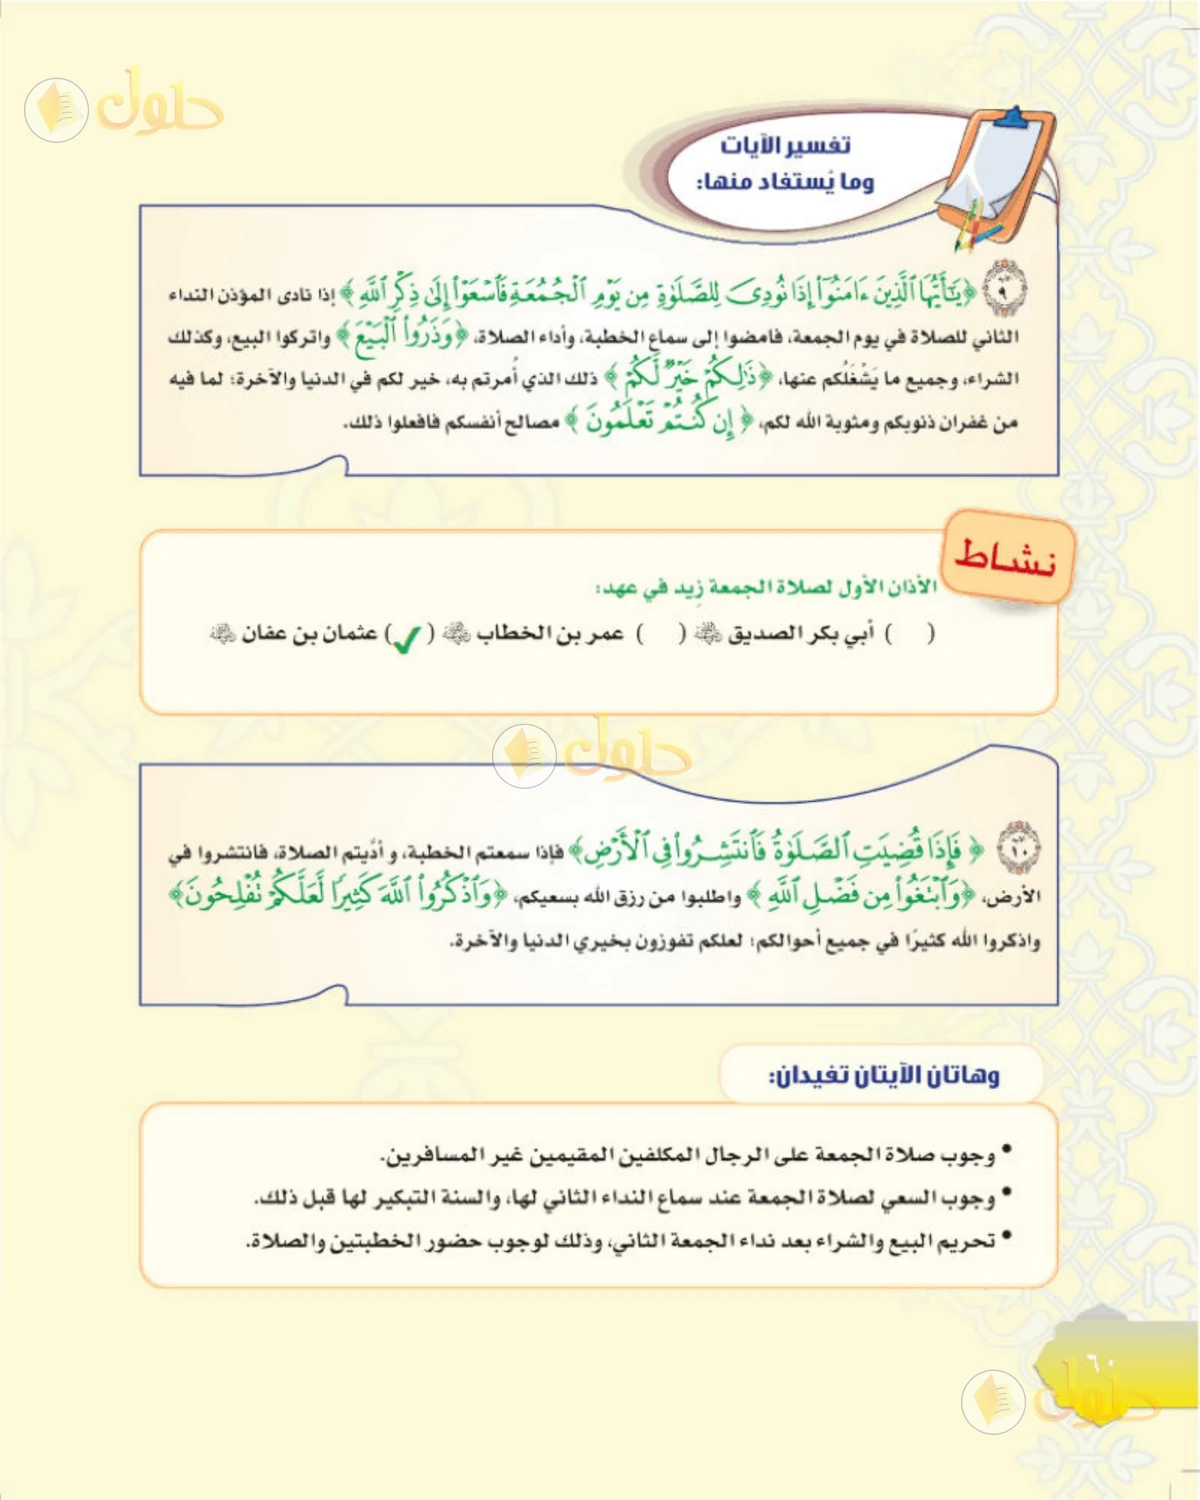 حلول
تفسير الآيات
وما يُستفاد منها:
٩ ﴿يَٰٓأَيُّهَا ٱلَّذِينَ ءَامَنُوٓاْ إِذَا نُودِىَ لِلصَّلَوٰةِ مِن يَوْمِ ٱلْجُمُعَةِ فَٱسْعَوْاْ إِلَىٰ ذِكْرِ ٱللَّهِ﴾ إذا نادى المؤذن النداء
الثاني للصلاة في يوم الجمعة، فامضوا إلى سماع الخطبة، وأداء الصلاة، ﴿وَذَرُواْ ٱلْبَيْعَ﴾ واتركوا البيع، وكذلك
الشراء، وجميع ما يَشْغَلُكم عنها، ﴿ذَٰلِكُمْ خَيْرٌ لَّكُمْ﴾ ذلك الذي أُمرتم به، خير لكم في الدنيا والآخرة؛ لما فيه
من غفران ذنوبكم ومثوبة الله لكم، ﴿إِن كُنتُمْ تَعْلَمُونَ﴾ مصالح أنفسكم فافعلوا ذلك.
نشاط
الأذان الأول لصلاة الجمعة زِيد في عهد:
( ) أبي بكر الصديق ﵁ ( ) عمر بن الخطاب ﵁ (✓) عثمان بن عفان ﵁
حلول
١٠ ﴿فَإِذَا قُضِيَتِ ٱلصَّلَوٰةُ فَٱنتَشِرُواْ فِى ٱلْأَرْضِ﴾ فإذا سمعتم الخطبة، و أدَّيتم الصلاة، فانتشروا في
الأرض، ﴿وَٱبْتَغُواْ مِن فَضْلِ ٱللَّهِ﴾ واطلبوا من رزق الله بسعيكم، ﴿وَٱذْكُرُواْ ٱللَّهَ كَثِيرًا لَّعَلَّكُمْ تُفْلِحُونَ﴾
واذكروا الله كثيرًا في جميع أحوالكم؛ لعلكم تفوزون بخيري الدنيا والآخرة.
وهاتان الآيتان تفيدان:
• وجوب صلاة الجمعة على الرجال المكلفين المقيمين غير المسافرين.
• وجوب السعي لصلاة الجمعة عند سماع النداء الثاني لها، والسنة التبكير لها قبل ذلك.
• تحريم البيع والشراء بعد نداء الجمعة الثاني، وذلك لوجوب حضور الخطبتين والصلاة.
٦٠
حلول